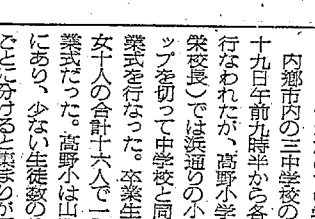 内郷市内の三中学校の
十九日午前九時半から各
行なわれたが、高野小学
栄校長）では浜通りの小
ップを切って中学校と同
業式を行なった。卒業生
女十人の合計十六人で一
業式だった。高野小は山
にあり、少ない生徒数の
ごとに分けると集まりが